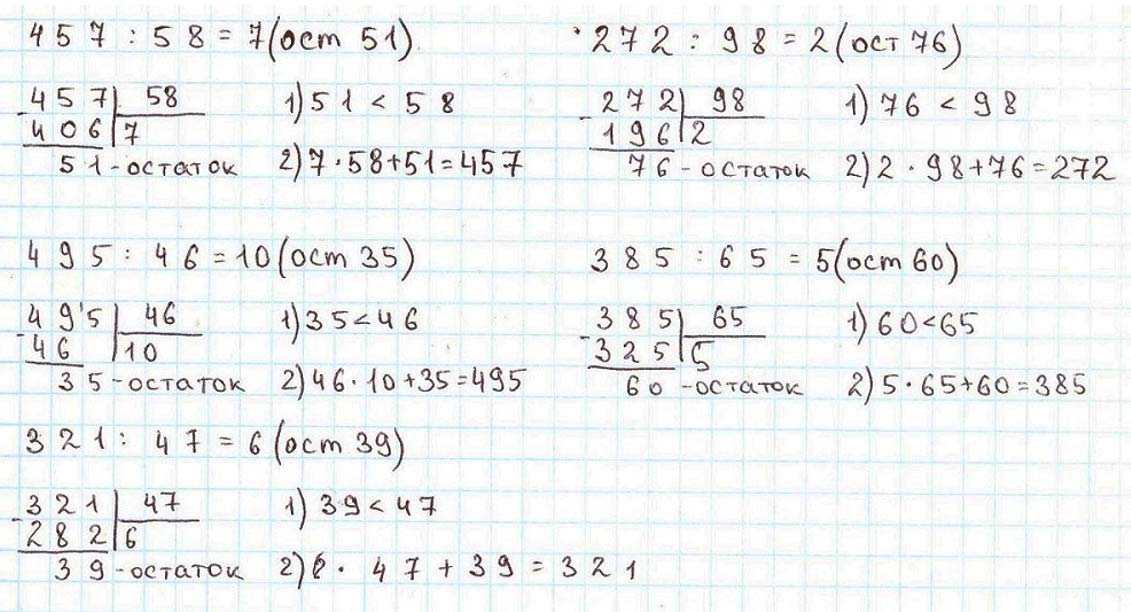 457 : 58 = 7 (ост 51)
457 | 58
- 406 | 7
51 - остаток
1) 51 < 58
2) 7 · 58 + 51 = 457
272 : 98 = 2 (ост 76)
272 | 98
- 196 | 2
76 - остаток
1) 76 < 98
2) 2 · 98 + 76 = 272
495 : 46 = 10 (ост 35)
495 | 46
- 46 | 10
35 - остаток
1) 35 < 46
2) 46 · 10 + 35 = 495
385 : 65 = 5 (ост 60)
385 | 65
- 325 | 5
60 - остаток
1) 60 < 65
2) 5 · 65 + 60 = 385
321 : 47 = 6 (ост 39)
321 | 47
- 282 | 6
39 - остаток
1) 39 < 47
2) 6 · 47 + 39 = 321